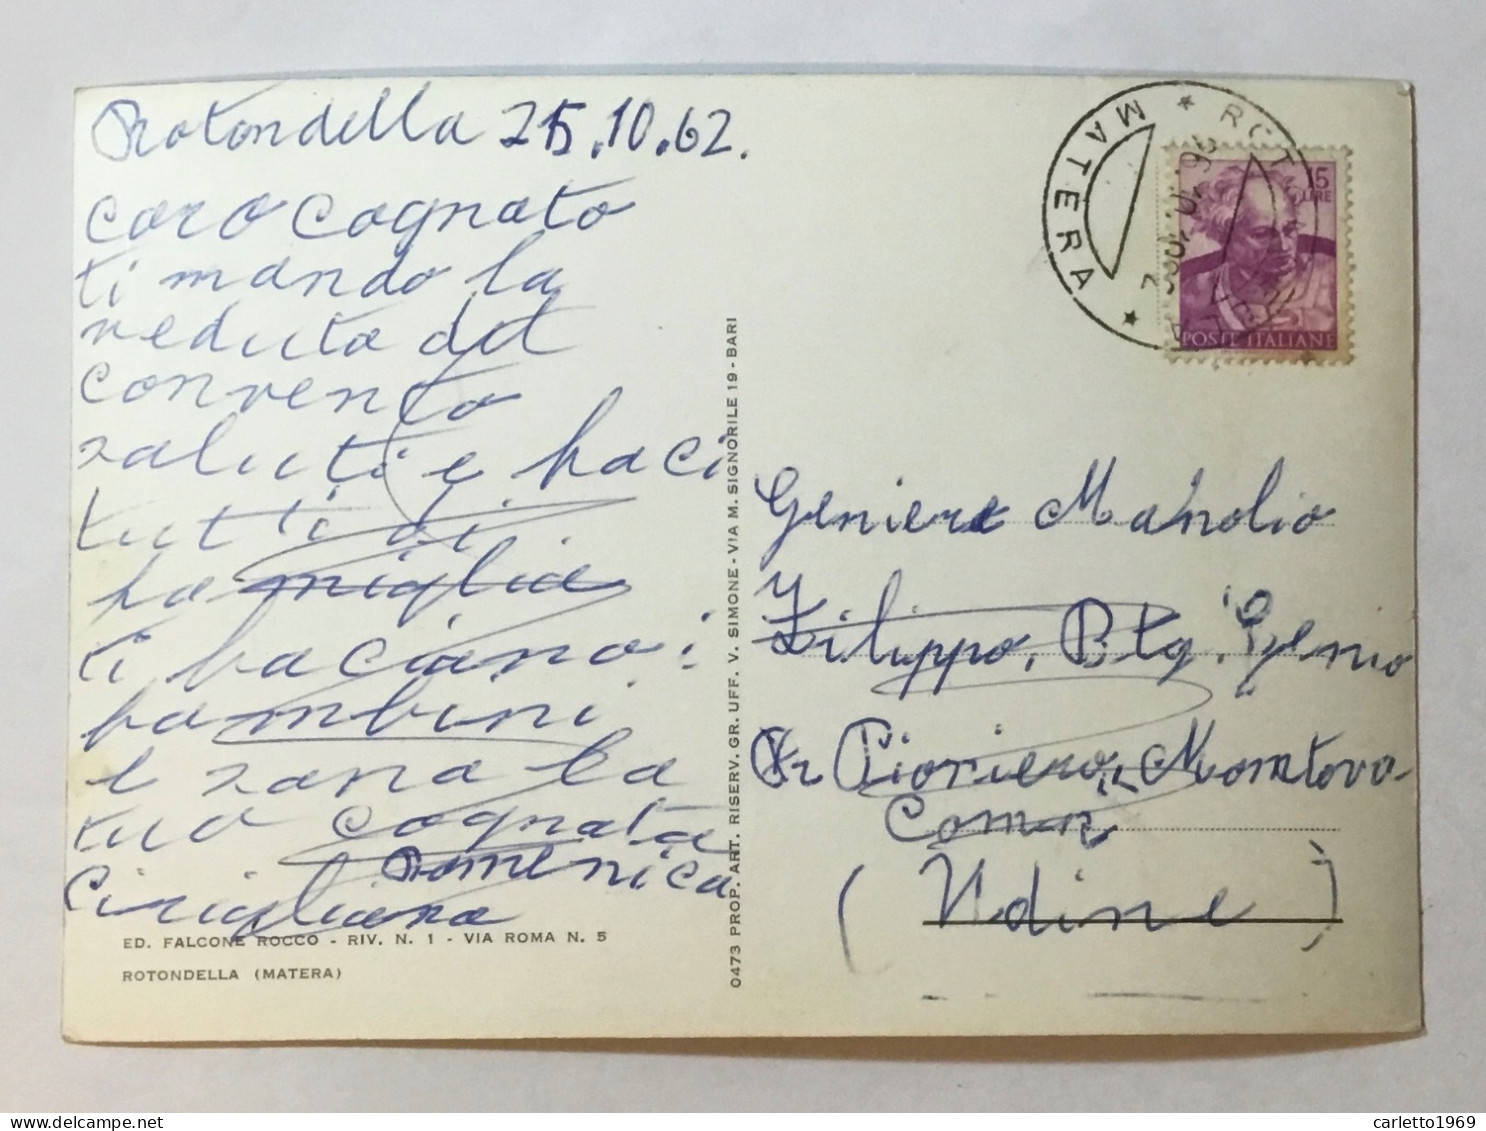 Rotondella 25.10.62.
caro cognato
ti mando la
veduta del
convento
saluti e baci
tutti di
famiglia
ti baciano i
bambini
e sono la
tuo cognata
Domenica
Cirigliano
ED. FALCONE ROCCO - RIV. N. 1 - VIA ROMA N. 5
ROTONDELLA (MATERA)
0473 PROP. ART. RISERV. GR. UFF. V. SIMONE - VIA M. SIGNORILE 19 - BARI
MATERA
15
LIRE
POSTE ITALIANE
Geniere Manolio
Filippo, Btg. Genio
Pionieri "Mantova"
(Udine)
carletto1969
delcampe.net